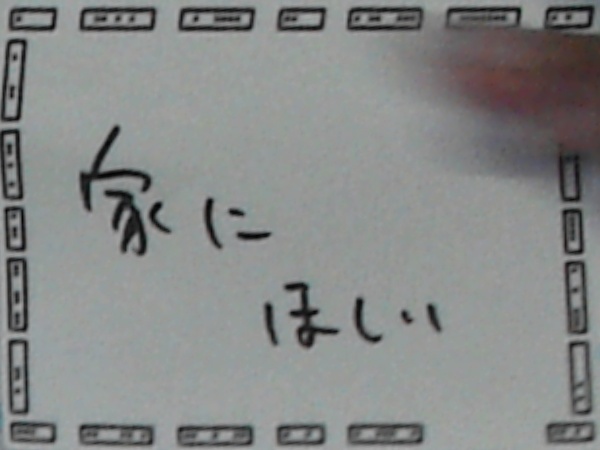 家に
ほしい